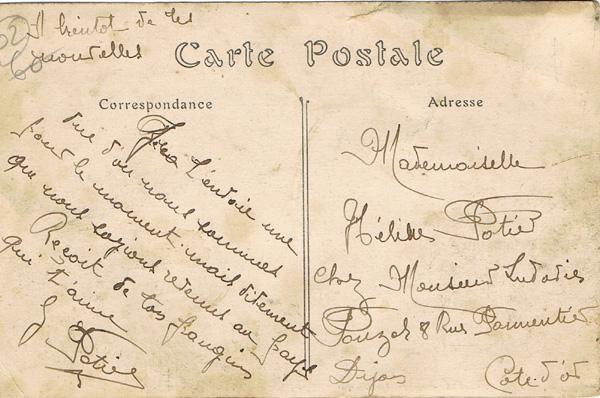 A bientot de tes
nouvelles
Carte Postale
Correspondance
Adresse
Je t'envoie une
vue d'ou nous sommes
pour le moment. mais vitement
que nous soyions revenus au pays
Reçoit de ton frangin
qui t'aime
Potier
Mademoiselle
Potier
chez Monsieur Ludovic
8 Rue Parmentier
Dijon Côte-d'or